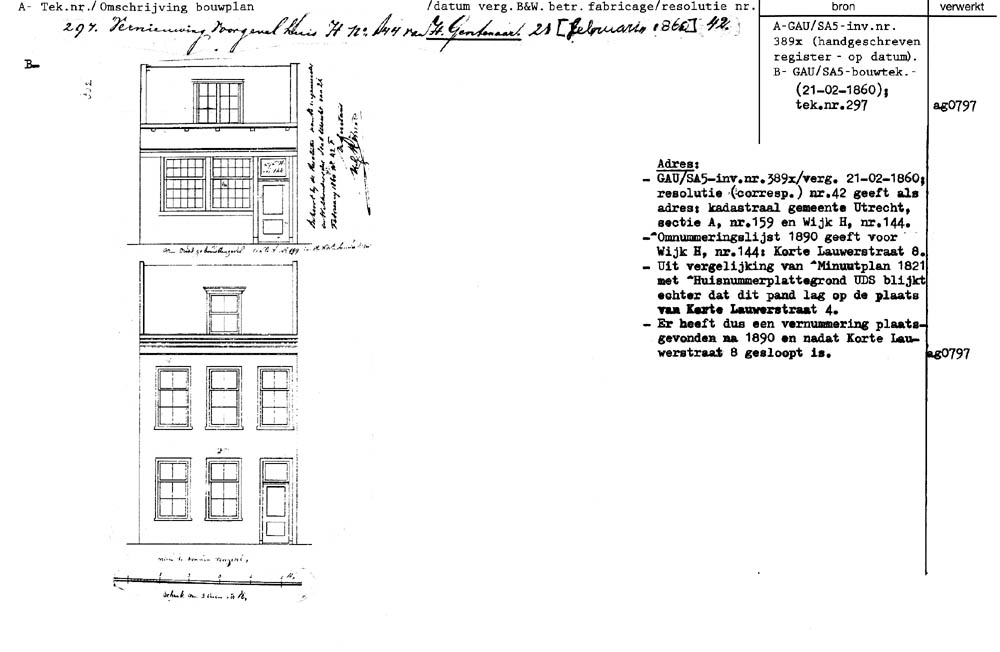 A- Tek.nr./ Omschrijving bouwplan /datum verg. B&W. betr. fabricage/resolutie nr. bron verwerkt
297. Vernieuwing Voorgevel Huis H No. 144 van H. Gentenaar. 21 [februarij 1860] 42.
A-GAU/SA5-inv.nr.
389x (handgeschreven
register - op datum).
B- GAU/SA5-bouwtek.-
(21-02-1860);
tek.nr.297 ag0797
B-
Adres:
- GAU/SA5-inv.nr.389x/verg. 21-02-1860;
resolutie (corresp.) nr.42 geeft als
adres: kadastraal gemeente Utrecht,
sectie A, nr.159 en Wijk H, nr.144.
-^Omnummeringslijst 1890 geeft voor
Wijk H, nr.144: Korte Lauwerstraat 8.
- Uit vergelijking van ^Minuutplan 1821
met ^Huisnummerplattegrond UDS blijkt
echter dat dit pand lag op de plaats
van Korte Lauwerstraat 4.
- Er heeft dus een vernummering plaats-
gevonden na 1890 en nadat Korte Lau-
werstraat 8 gesloopt is. ag0797